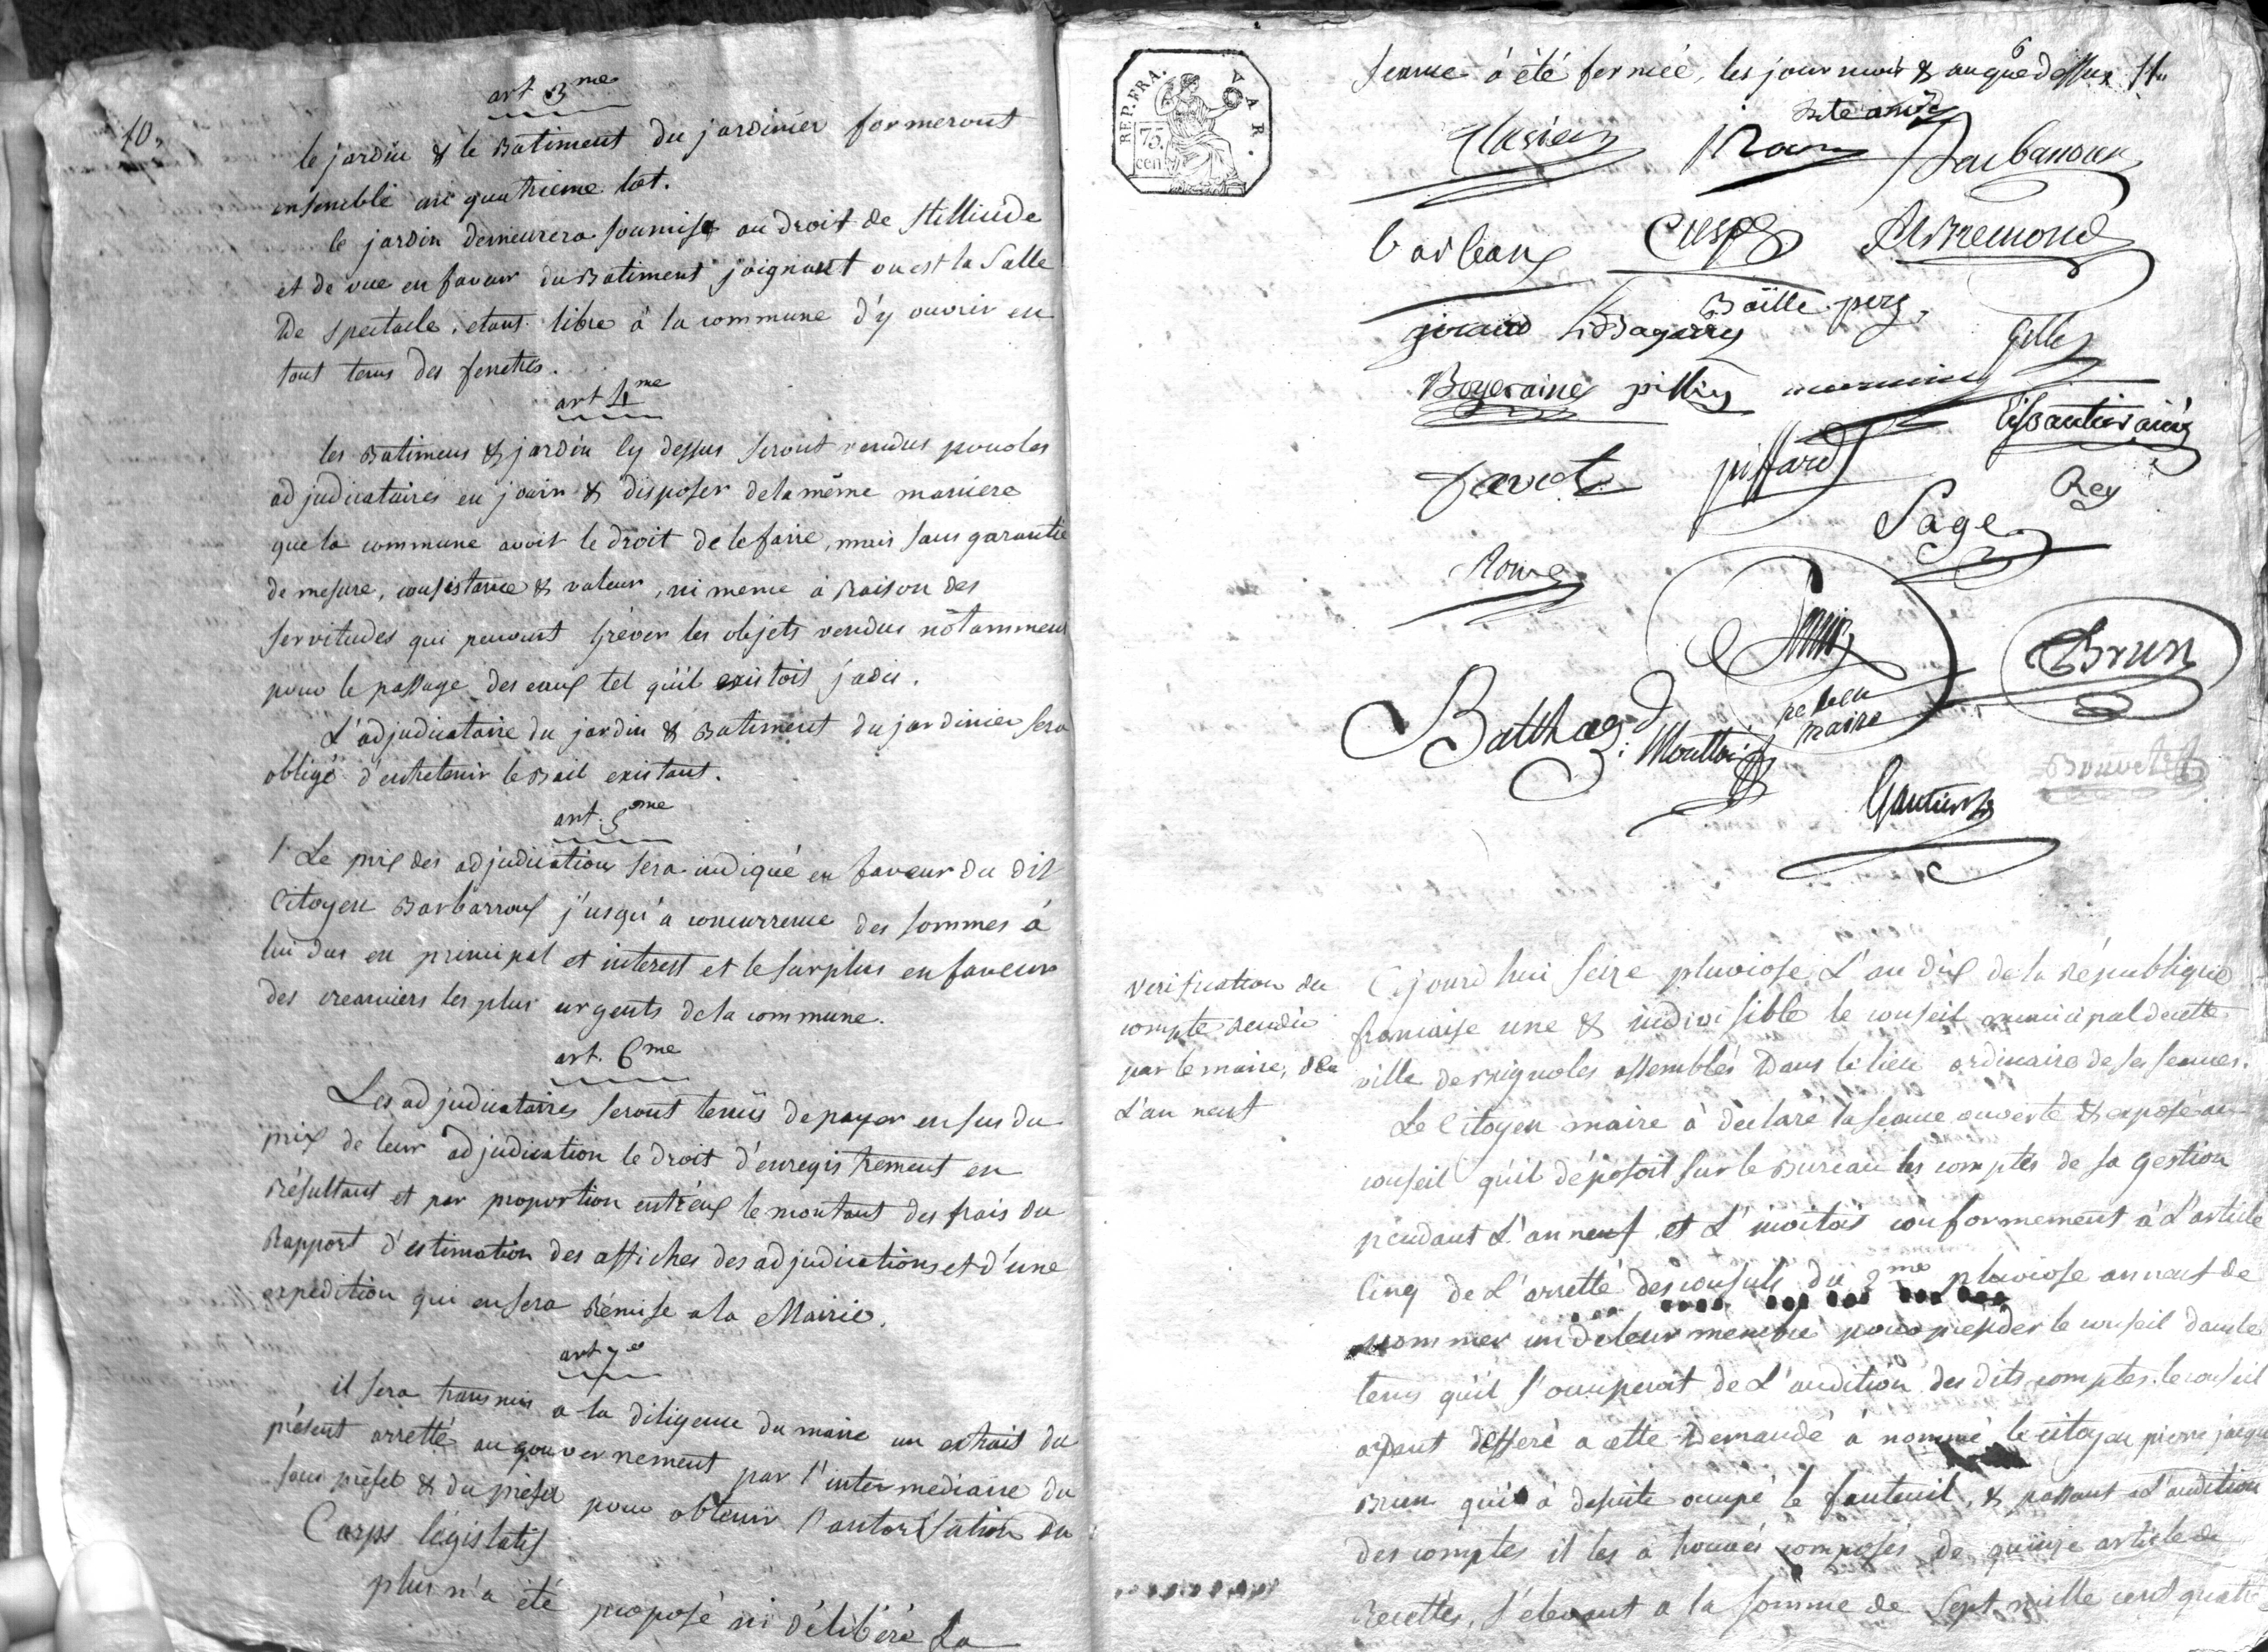 10.
art 3me
le jardin & le Batiment du jardinier formeront
ensemble un quatrieme lot.
le jardin demeurera soumise au droit de stillicide
et de vue en faveur du Batiment joignant ou est la Salle
De spectacle, etant libre à la commune d'y ouvrir en
tout tems des fenetres.
art 4me
les Batimens & jardin cy dessus seront vendus pour les
adjudicataires en jouir & disposer de la même maniere
que la commune avoit le droit de le faire, mais sans garantie
de mesure, consistance & valeur, ni meme à Raison des
servitudes qui peuvent gréver les objets vendus nôtamment
pour le passage des eaux tel qu'il existoit jadis.
L'adjudicataire du jardin & Batiment du jardinier sera
obligé d'entretenir le Bail existant.
art. 5me
Le prix des adjudications sera indiqué en faveur du dit
Citoyen Barbarroux j'usqu'a concurrence des sommes à
lui dus en principal et interest et le surplus en faveur
des creanciers les plus urgents de la commune.
art. 6me
Les adjudicataires seront tenüs de payer en sus du
prix de leur adjudication le droit d'enregistrement en
Résultant et par proportion entr'eux le montant des frais du
Rapport d'estimation des affiches des adjudications et d'une
expedition qui en sera Rémise a la Mairie.
art 7e
il sera transmis a la diligence du maire un extrait du
présent arretté au gouvernement par l'intermediaire du
sous préfet & du préfet pour obtenir l'autorisation du
Corps législatif
plus n'a été proposé ni délibéré La
REP. FRA.
75
cent
A. R.
seance à été fermée, les jour mois & an que dessus
Barbaroux
Barleans
Crespe
Bremond
giraud
Bagarry
Baille
Gilles
Boyer ainé
pissard
Gautier ainé
Rey
Sage
Roure
Brun
maire
Moutton
Bouvet
Gautier
verification du
compte rendu
par le maire, de
L'an neuf
Cejourd'hui seize pluviose L'an dix de la République
francaise une & indivisible le conseil municipal de cette
ville de Brignoles assemblés Dans le lieu ordinaire de ses seances.
Le Citoyen maire à déclaré la seance ouverte & exposé au
conseil qu'il déposoit sur le Bureau les comptes de sa gestion
pendant L'an neuf et L'invitois conformement à L'article
Cinq de L'arretté des consuls du 2me pluviose an neuf de
nommer un de leur membre pour présider le conseil dans le
tems qu'il s'occuperoit de L'audition des dits comptes. le conseil
ayant défferé a cette Demande à nommé le citoyen pierre jacque
Brun qui à desuite occupé le fauteuil, & passant a L'audition
des comptes il les a trouvés composés de quinze article de
Recettes, s'élevant a la somme de Sept mille cent quatre